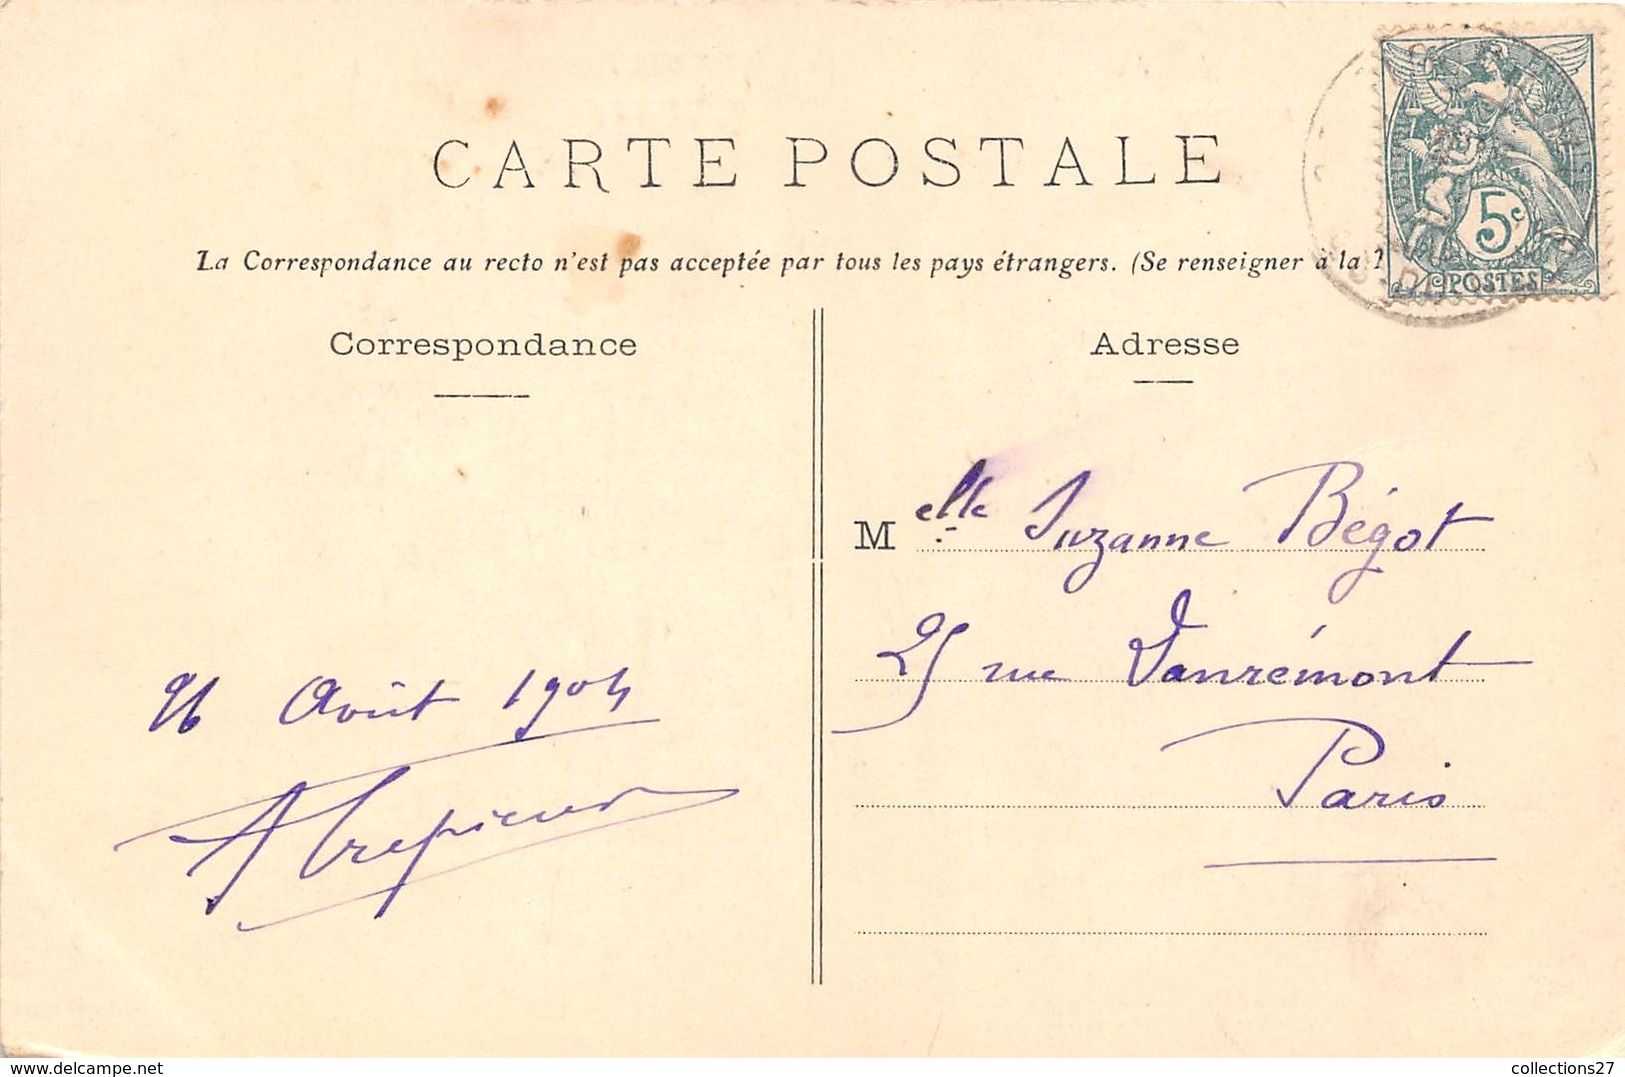 CARTE POSTALE
La Correspondance au recto n'est pas acceptée par tous les pays étrangers. (Se renseigner à la
5c
POSTES
Correspondance
Adresse
Melle Suzanne Bégot
25 rue Danrémont
Paris
26 Août 1904
https://www.delcampe.net
collections27